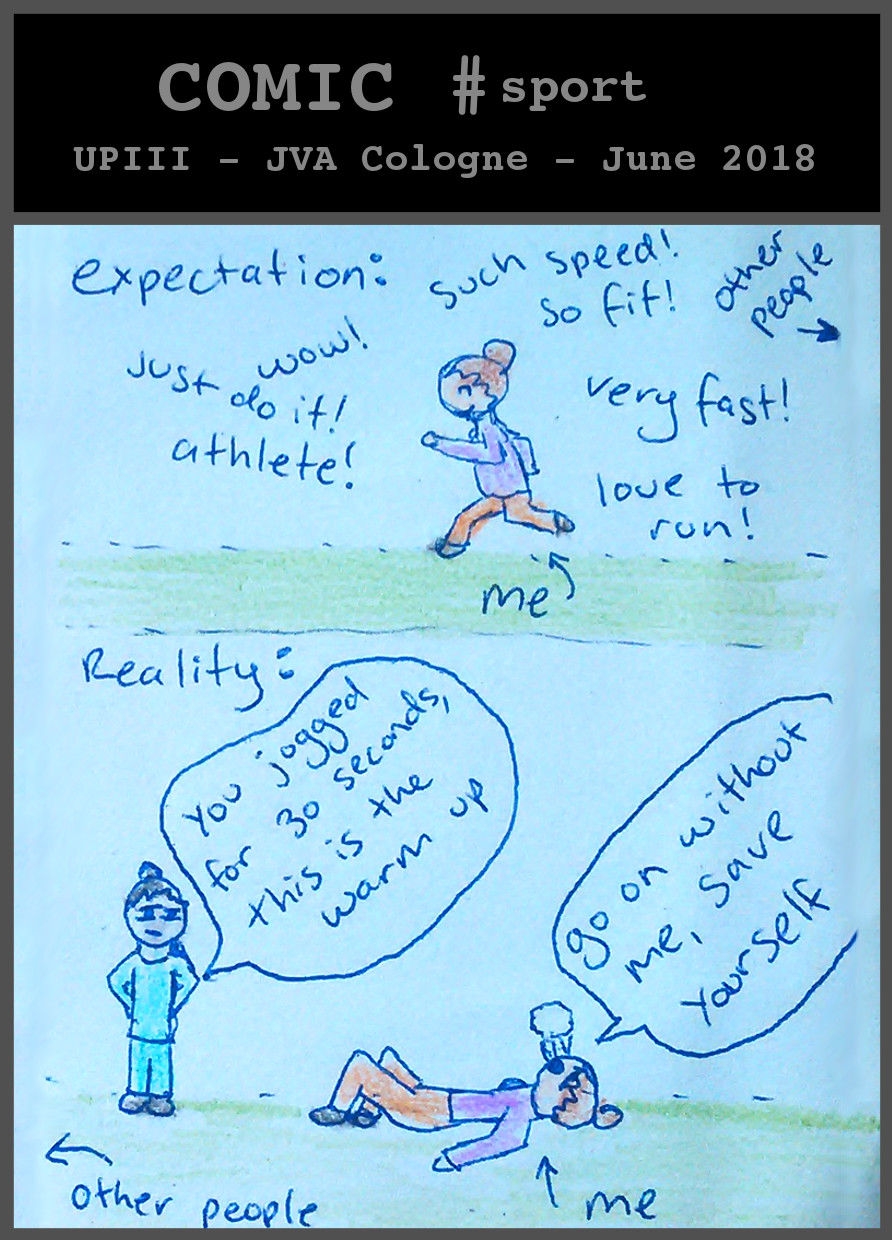 COMIC #sport
UPIII - JVA Cologne - June 2018
expectation:
such speed!
so fit!
other
people
wow!
Just
do it!
athlete!
very fast!
love to
run!
me
Reality:
You jogged
for 30 seconds,
this is the
warm up
go on without
me, save
yourself
other people
me